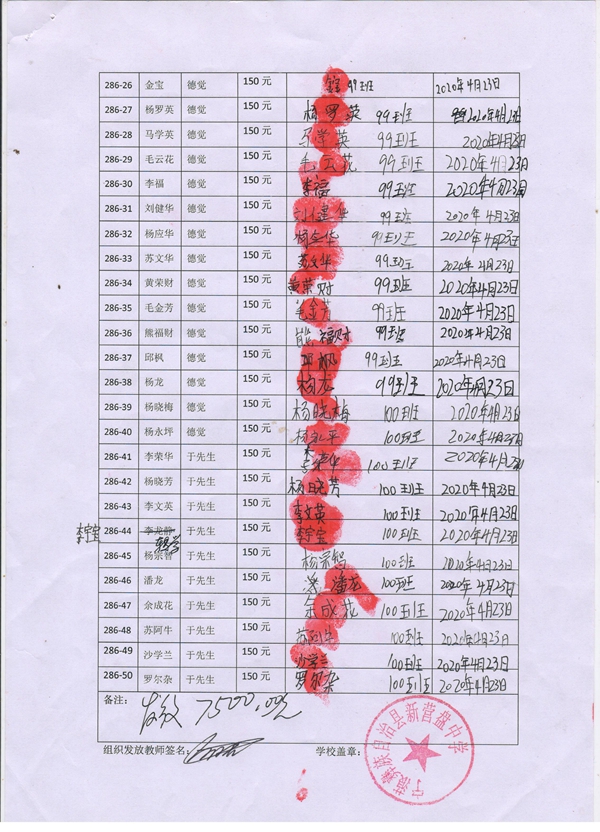 286-26 金宝 德觉 150元 金宝 99班 2020年4月23日
286-27 杨罗英 德觉 150元 杨罗英 99班 2020年4月23日
286-28 马学英 德觉 150元 马学英 99班 2020年4月23日
286-29 毛云花 德觉 150元 毛云花 99班 2020年4月23日
286-30 李福 德觉 150元 李福 99班 2020年4月23日
286-31 刘健华 德觉 150元 刘健华 99班 2020年4月23日
286-32 杨应华 德觉 150元 杨应华 99班 2020年4月23日
286-33 苏文华 德觉 150元 苏文华 99班 2020年4月23日
286-34 黄荣财 德觉 150元 黄荣财 99班 2020年4月23日
286-35 毛金芳 德觉 150元 毛金芳 99班 2020年4月23日
286-36 熊福财 德觉 150元 熊福财 99班 2020年4月23日
286-37 邱枫 德觉 150元 邱枫 99班 2020年4月23日
286-38 杨龙 德觉 150元 杨龙 99班 2020年4月23日
286-39 杨晓梅 德觉 150元 杨晓梅 100班 2020年4月23日
286-40 杨永坪 德觉 150元 杨永平 100班 2020年4月23日
286-41 李荣华 于先生 150元 李荣华 100班 2020年4月23日
286-42 杨晓芳 于先生 150元 杨晓芳 100班 2020年4月23日
286-43 李文英 于先生 150元 李文英 100班 2020年4月23日
李宝 286-44 李龙 于先生 150元 李宝 100班 2020年4月23日
286-45 杨宗智 于先生 150元 杨宗 100班 2020年4月23日
286-46 潘龙 于先生 150元 潘龙 100班 2020年4月23日
286-47 余成花 于先生 150元 余成花 100班 2020年4月23日
286-48 苏阿牛 于先生 150元 苏阿牛 100班 2020年4月23日
286-49 沙学兰 于先生 150元 沙学兰 100班 2020年4月23日
286-50 罗尔杂 于先生 150元 罗尔杂 100班 2020年4月23日
备注：
发放 7500.00元
组织发放教师签名：
学校盖章：
宁蒗彝族自治县新营盘中学